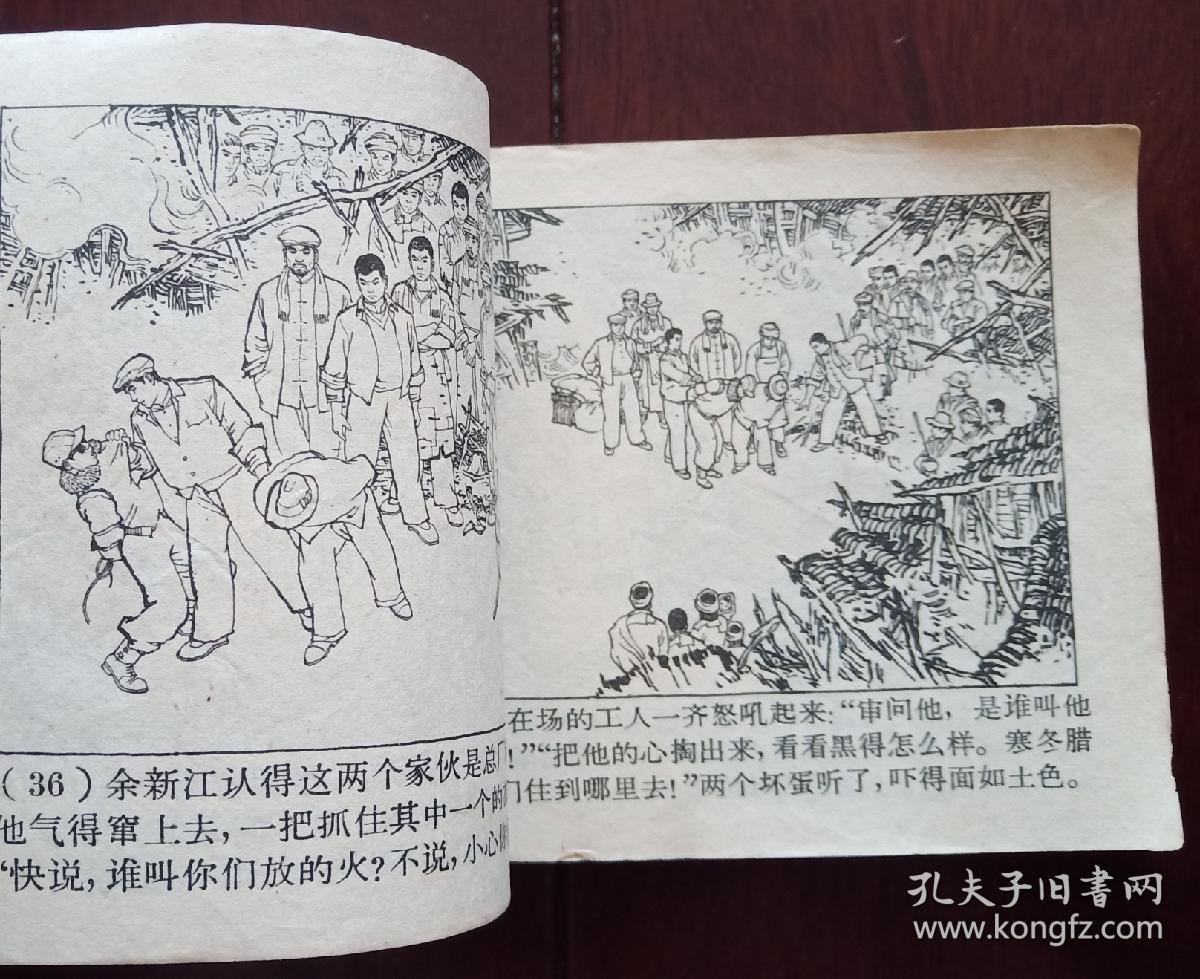 (36)余新江认得这两个家伙是总厂
他气得窜上去，一把抓住其中一个的
“快说，谁叫你们放的火？不说，小心
在场的工人一齐怒吼起来：“审问他，是谁叫他
！”“把他的心掏出来，看看黑得怎么样。寒冬腊
们住到哪里去！”两个坏蛋听了，吓得面如土色。
孔夫子旧書网
www.kongfz.com